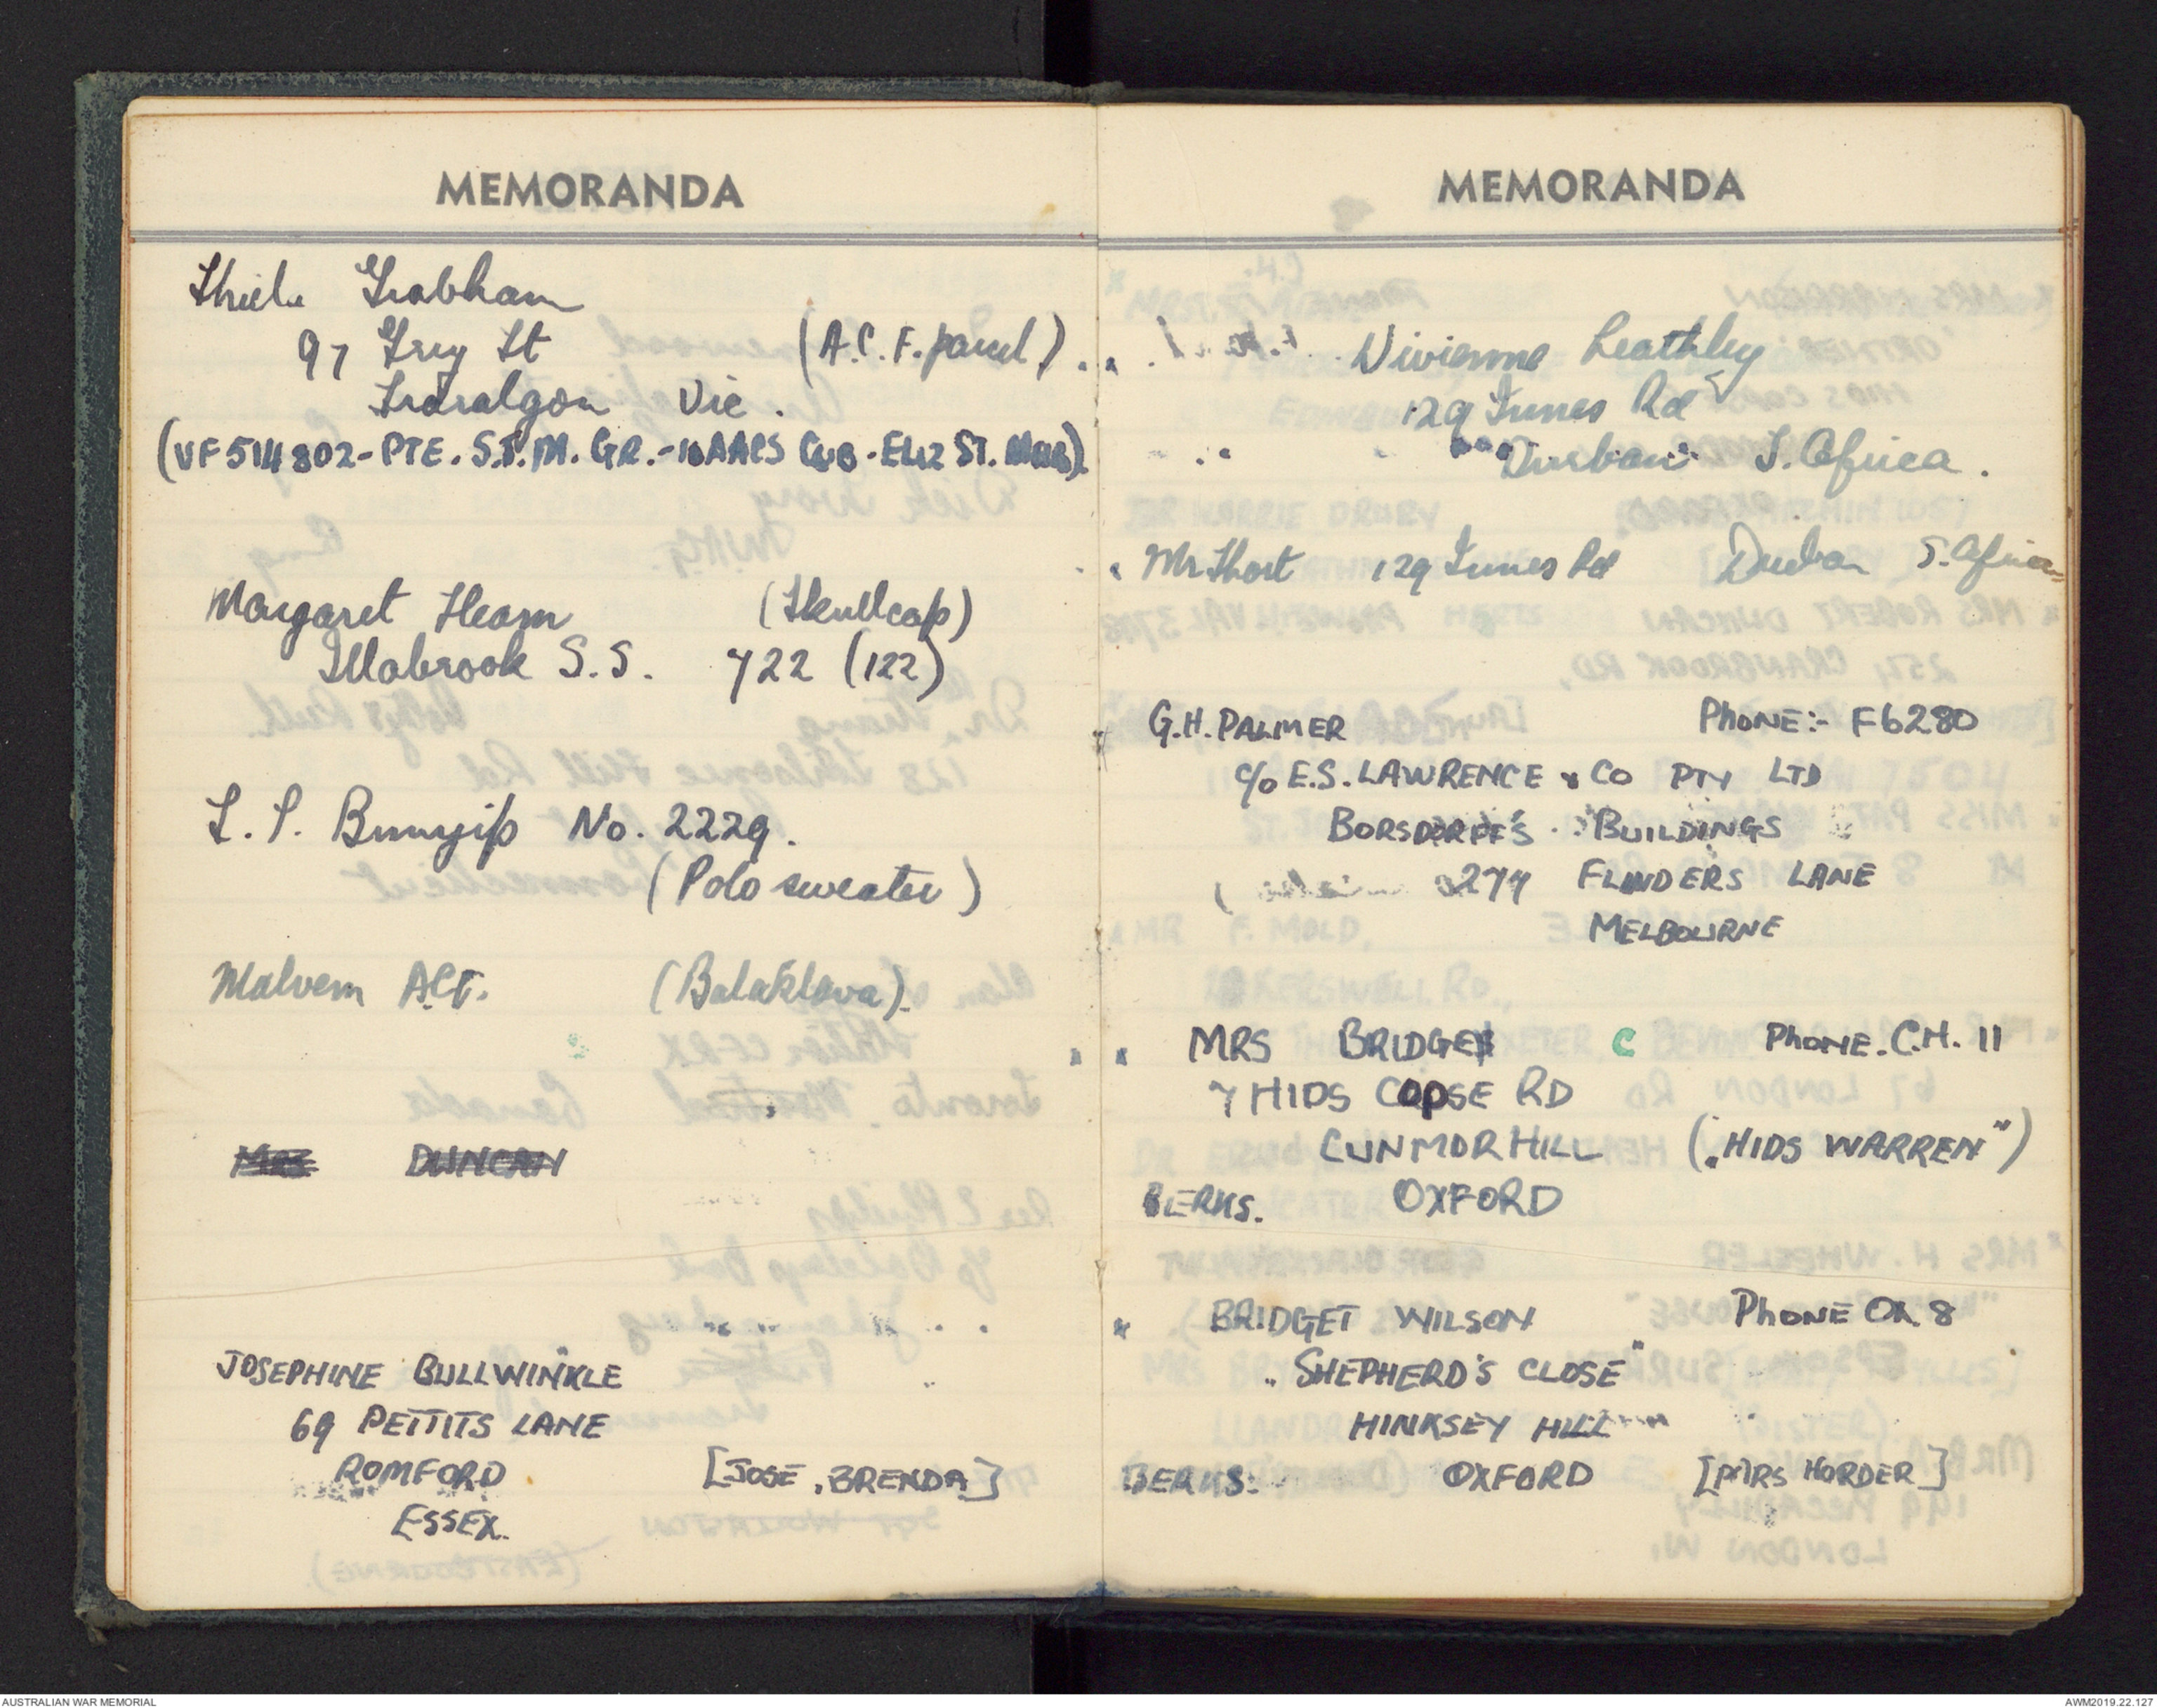 MEMORANDA
Sheila Grabham
97 Grey St (A.C.F. parcel)
Traralgon Vic.
(VF514802 - PTE. S.J.M. GR. - AAPS CLUB - ELIZ ST. MELB)
Margaret Hearn (Skullcap)
Illabrook S.S. 722 (122)
L. P. Bunyip No. 2229.
(Polo sweater)
Malvern ACF. (Balaklava).
MRS DUNCAN
JOSEPHINE BULLWINKLE
69 PETTITS LANE
ROMFORD [JOSE, BRENDA]
ESSEX.
MEMORANDA
Vivienne Leathley
129 Innes Rd
Durban S. Africa.
Mr Short 129 Innes Rd Durban S. Africa
G.H. PALMER PHONE:- F6280
c/o E.S. LAWRENCE & CO PTY LTD
BORSDORFF'S BUILDINGS
277 FLINDERS LANE
MELBOURNE
MRS BRIDGE C PHONE. C.H. 11
7 HIDS COPSE RD
CUNMOR HILL ("HIDS WARREN")
BERKS. OXFORD
BRIDGET WILSON PHONE OX. 8
"SHEPHERD'S CLOSE"
HINKSEY HILL
BERKS. OXFORD [MRS HORDER]
AUSTRALIAN WAR MEMORIAL AWM2019.22.127